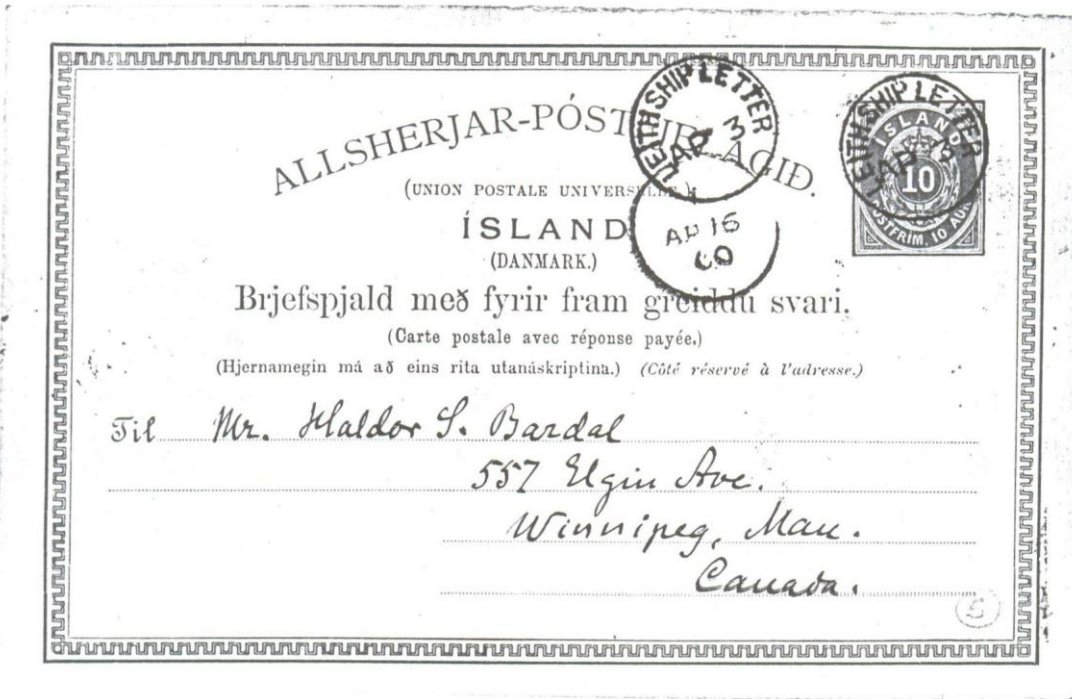 ALLSHERJAR-PÓSTFJELAGIÐ.
(UNION POSTALE UNIVERSELLE.)
ÍSLAND
(DANMARK.)
Brjefspjald með fyrir fram greiddu svari.
(Carte postale avec réponse payée.)
(Hjernamegin má að eins rita utanáskriptina.) (Côté réservé à l'adresse.)
LEITH SHIP LETTER
AP 3
AP 16
00
LEITH SHIP LETTER
AP 3
ISLAND
10
PÓSTFRIM. 10 AUR.
Til Mr. Haldor S. Bardal
557 Elgin Ave.
Winnipeg, Man.
Canada.
5